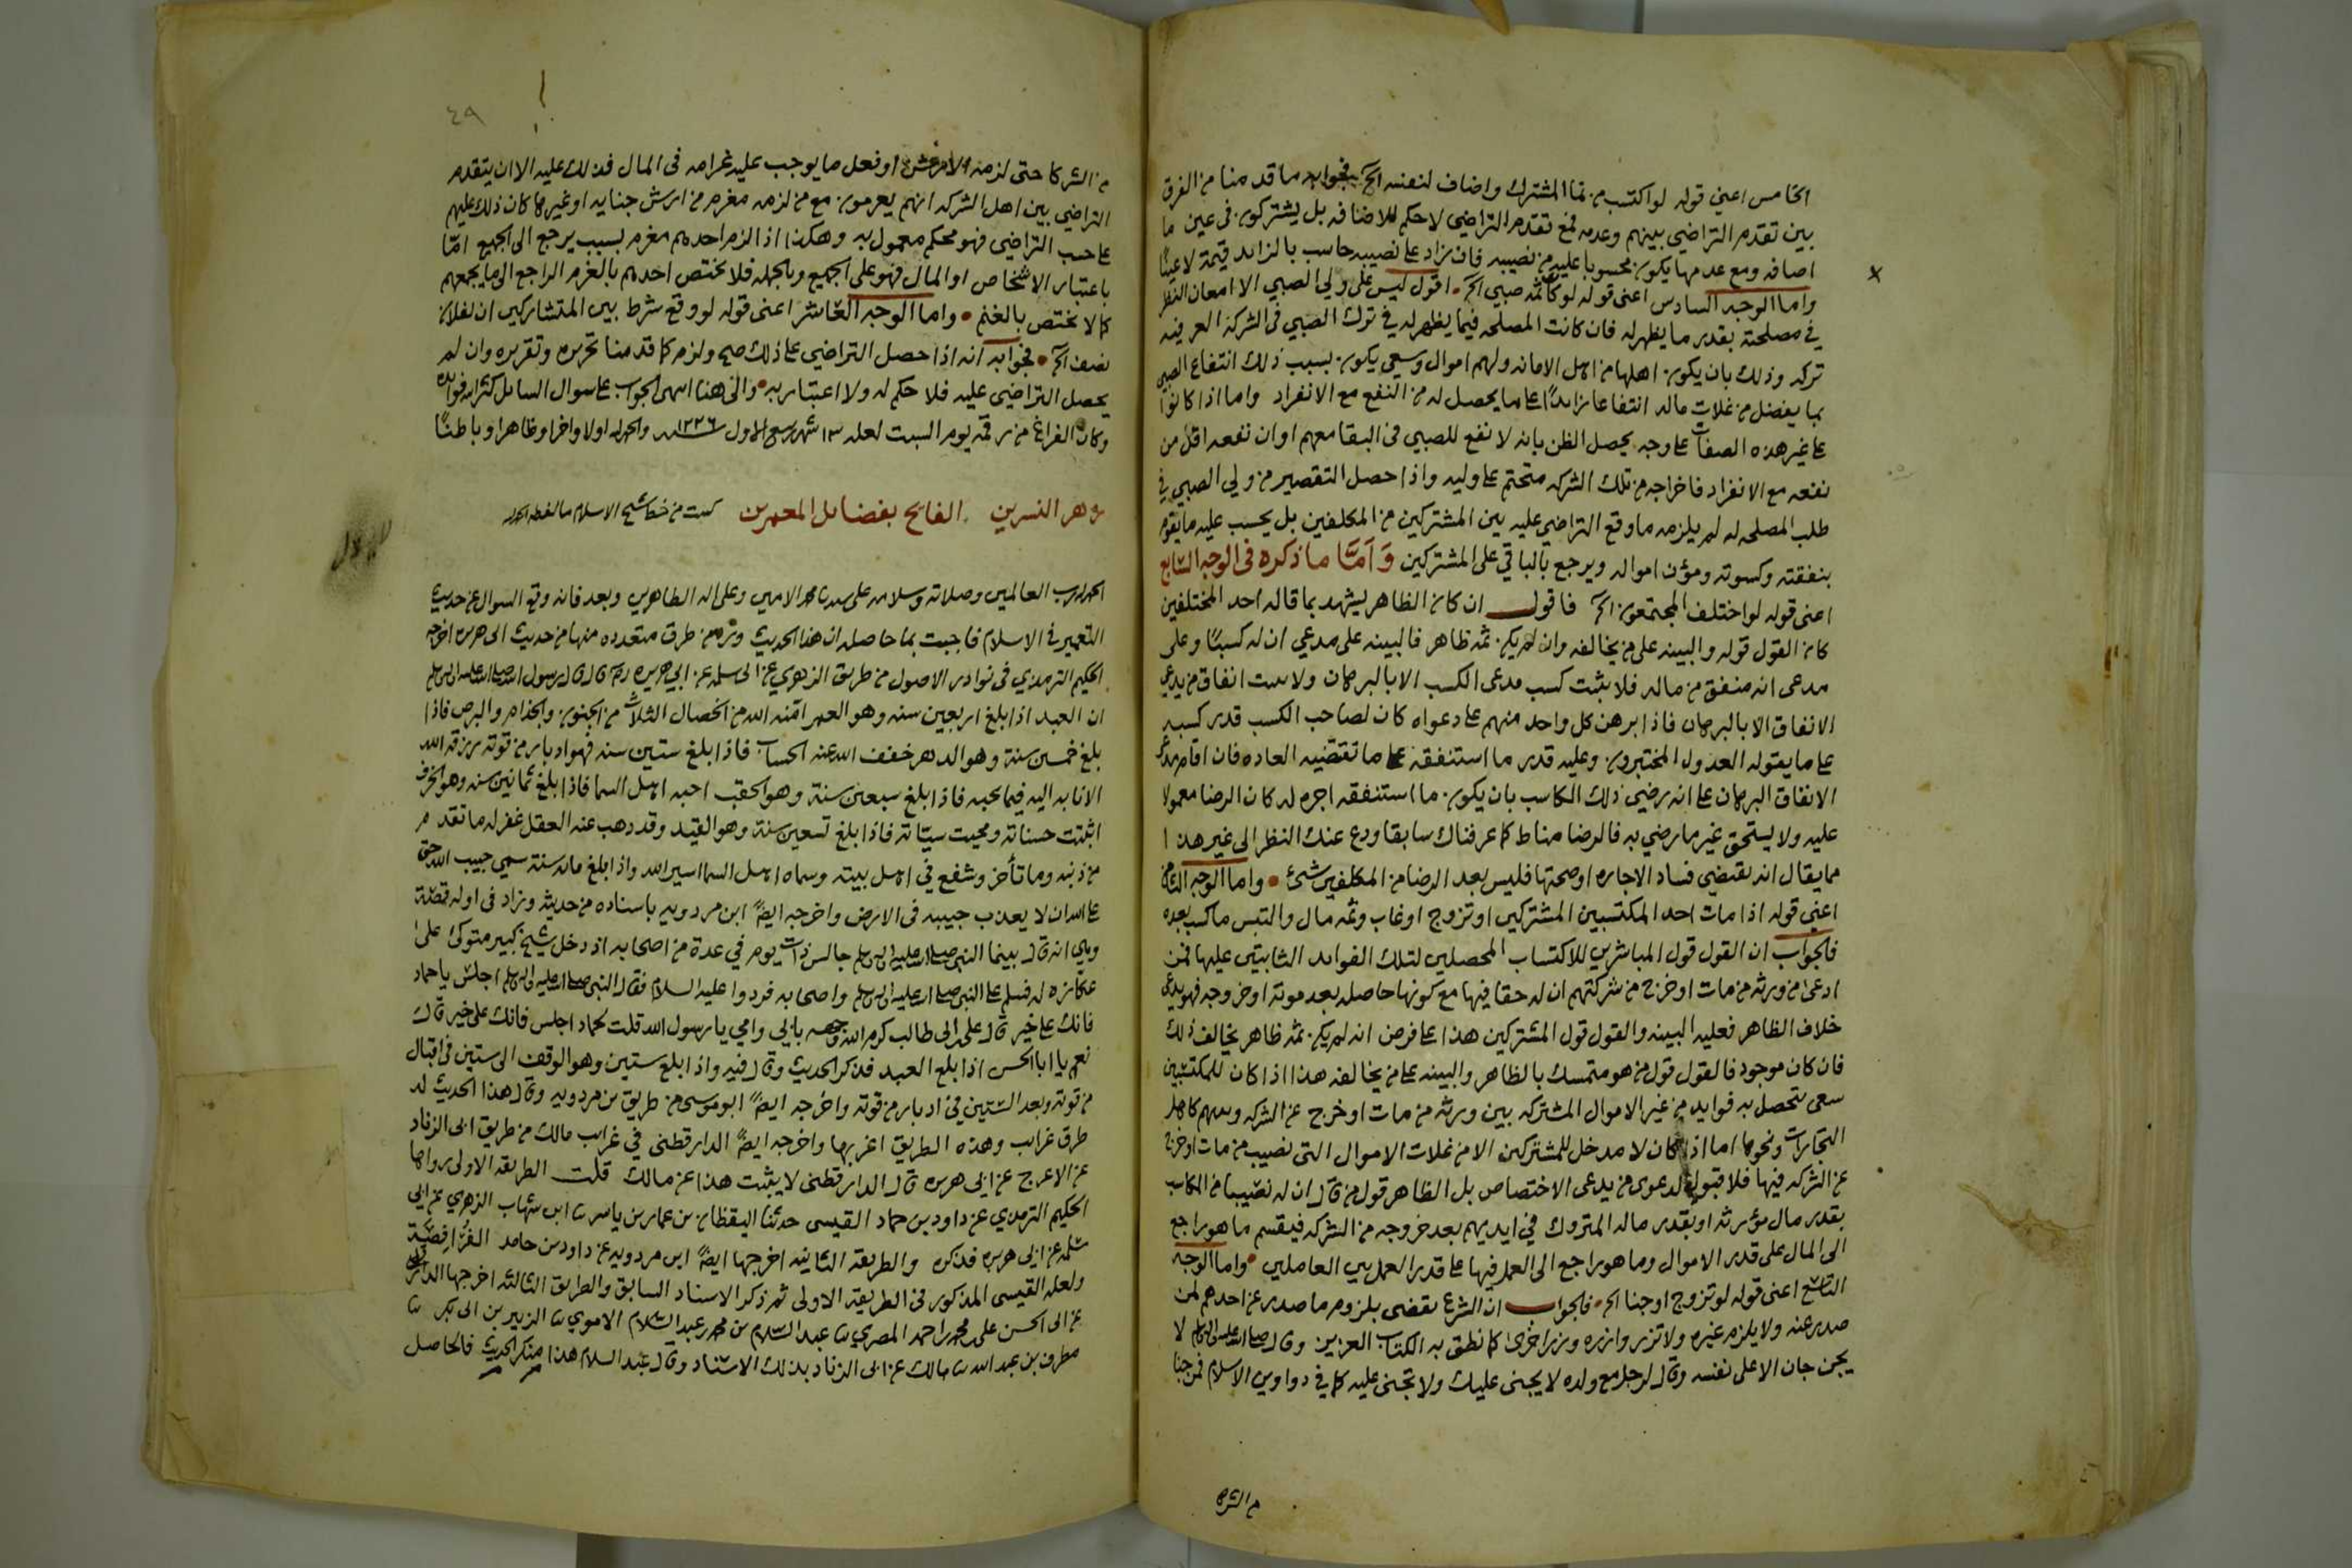 الخامس اعني قوله لو اكتسب من نما المشترك واضاف لنفسه الخ فجوابه ما قد منا من الفرق
بين تقدم التراضي بينهم وعدمه فمع تقدم التراضي لا حكم للاضافه بل يشتركون في عين ما
اضافه ومع عدمها يكون محسوبا عليه من نصيبه فان زاد على نصيبه حاسب بالزايد قيمة لا عينًا
واما الوجه السادس اعنى قوله لو كان ثمه صبي الخ اقول ليس على ولي الصبي الا امعان النظر
في مصلحته بقدر ما يظهر له فان كانت المصلحه فيما يظهر له في ترك الصبي في الشركة العرفيه
تركه وذلك بان يكون اهلها من اهل الامانه ولهم اموال وسعي يكون بسبب ذلك انتفاع الصبي
بما يفضل من غلات ماله انتفاعا زايدًا على ما يحصل له من النفع مع الانفراد واما اذا كانوا
على غير هذه الصفات على وجه يحصل الظن بانه لا نفع للصبي في البقا معهم او ان نفعه اقل من
نفعه مع الانفراد فاخراجه من تلك الشركه متحتم على وليه واذا حصل التقصير من ولي الصبي في
طلب المصلحه له لم يلزمه ما وقع التراضي عليه بين المشتركين من المكلفين بل يحسب عليه ما يقوم
بنفقته وكسوته ومؤن امواله ويرجع بالباقي على المشتركين وَاَمَّا ما ذكره فى الوجه السابع
اعنى قوله لو اختلف المجتمعون الخ فاقول ان كان الظاهر يشهد بما قاله احد المختلفين
كان القول قوله والبينه على من يخالفه وان لم يكن ثمه ظاهر فالبينه على مدعي ان له كسبًا وعلى
مدعى انه منفق من ماله فلا يثبت كسب مدعى الكسب الا بالبرهان ولا يثبت انفاق من يدعي
الانفاق الا بالبرهان فاذا برهن كل واحد منهم على دعواه كان لصاحب الكسب قدر كسبه
على ما يقوله العدول المختبرون وعليه قدر ما استنفقه على ما تقتضيه العاده فان اقام مدعي
الانفاق البرهان على انه رضي ذلك الكاسب بان يكون ما استنفقه اجره له كان الرضا معمولا
عليه ولا يستحق غير ما رضي به فالرضا مناط كما عرفناك سابقا ودع عنك النظر الى غير هذا
مما يقال انه يقتضي فساد الاجاره او صحتها فليس بعد الرضا من المكلفين شئ واما الوجه الثامن
اعني قوله اذا مات احد المكتسبين المشتركين او تزوج او غاب وثمه مال والتبس ما كسب بعده
فالجواب ان القول قول المباشرين للاكتساب المحصلين لتلك الفوايد الثابتين عليها فمن
ادعى من ورثه من مات او خرج من شركتهم ان له حقا فيها مع كونها حاصله بعد موته او خروجه فهو يدعي
خلاف الظاهر فعليه البينه والقول قول المشتركين هذا على فرض انه لم يكن ثمه ظاهر يخالف ذلك
فان كان موجود فالقول قول من هو متمسك بالظاهر والبينه على من يخالفه هذا اذا كان للمكتسبين
سعى تتحصل به فوايد من غير الاموال المشتركه بين ورثه من مات او خرج عن الشركه
التجارات ونحوها اما اذا كان لا مدخل للمشتركين الا من غلات الاموال التى نصيب من مات او خرج
عن الشركه فيها فلا قبول لدعوى من يدعى الاختصاص بل الظاهر قول من قال ان له نصيبا من المكاسب
بقدر مال مؤرثه او بقدر ماله المتروك في ايديهم بعد خروجه من الشركه فيقسم ما هو راجع
الى المال على قدر الاموال وما هو راجع الى العمل فيها على قدر العمل بين العاملين واما الوجه
التاسع اعنى قوله لو تزوج او جنا الخ فالجواب ان الشرع يقضى بلزوم ما صدر عن احدهم لمن
صدر عنه ولا يلزم غيره ولا تزر وازره وزر اخرى كما نطق به الكتاب العزيز وقال صلى الله عليه واله وسلم لا
يجن جان الا على نفسه وقال لرجل مع ولده لا يجنى عليك ولا تجنى عليه كما في دواوين الاسلام فمن جنا
من الشركا
٤٩
من الشركا حتى لزمه الارش او فعل ما يوجب عليه غرامه فى المال فذلك عليه الا ان يتقدم
التراضي بين اهل الشركه انهم يغرمون مع من لزمه مغرم من ارش جنايه او غيرها كان ذلك عليهم
على حسب التراضي فهو محكم معمول به وهكذا اذا لزم احدهم مغرم بسبب يرجع الى الجميع امّا
باعتبار الاشخاص او المال فهو على الجميع وبالجمله فلا يختص احدهم بالغرم الراجع الى ما يجمعهم
كما لا يختص بالغنم واما الوجه العاشر اعنى قوله لو وقع شرط بين المتشاركين ان لفلان
نصف الخ فجوابه انه اذا حصل التراضي على ذلك صح ولزم كما قد منا تحريره وتقريره وان لم
يحصل التراضي عليه فلا حكم له ولا اعتبار به والى هنا انتهى الجواب على سوال السائل كثر الله فوائده
وكان الفراغ من رقمه يوم السبت لعله ١٣ شهر ربيع الاول سنه ١٢٣٦ والحمد لله اولا واخرا وظاهرا وباطنًا
زهر النسرين الفائح بفضائل المعمرين كتبت من خط شيخ الاسلام ما لفظه
الحمد لله رب العالمين وصلاته وسلامه على سيدنا محمد الامين وعلى اله الطاهرين وبعد فانه وقع السوال عن حديث
التعمير في الاسلام فاجبت بما حاصله ان هذا الحديث ورد من طرق متعدده منها من حديث ابي هريره اخرجه
الحكيم الترمذي في نوادر الاصول من طريق الزهري عن ابي سلمه عن ابي هريره رضي قال قال رسول الله صلى الله عليه واله وسلم
ان العبد اذا بلغ اربعين سنه وهو العمر امّنه الله من الخصال الثلاث من الجنون والجذام والبرص فاذا
بلغ خمسين سنة وهو الدهر خفف الله عنه الحساب فاذا بلغ ستين سنه فهو ادبار من قوته رزقه الله
الانابه اليه فيما يحبه فاذا بلغ سبعين سنة وهو الحقب احبه اهل السما فاذا بلغ ثمانين سنه وهو الخرف
اثبتت حسناته ومحيت سيّاته فاذا بلغ تسعين سنة وهو الفند وقد ذهب عنه العقل غفر له ما تقدم
من ذنبه وما تأخر وشفع في اهل بيته وسماه اهل السما اسير الله واذا بلغ مائه سنة سمي حبيب الله حق
على الله ان لا يعذب حبيبه فى الارض واخرجه ايضًا ابن مردويه باسناده من حديثه وزاد فى اوله قصّة
وهي انه قال بينما النبي صلى الله عليه واله وسلم جالس ذات يوم في عدة من اصحابه اذ دخل شيخ كبير متوكئ على
عكازه له فسلم على النبي صلى الله عليه واله وسلم واصحابه فردوا عليه السلام فقال النبي صلى الله عليه واله وسلم اجلس يا حماد
فانك على خير قال علي ابن ابي طالب كرم الله وجهه بابي وامي يا رسول الله قلت لحماد اجلس فانك على خير قال
نعم يا ابا الحسن اذا بلغ العبد فذكر الحديث وقال فيه واذا بلغ ستين وهو الوقف الى ستين في اقبال
من قوته وبعد الستين في ادبار من قوته واخرجه ايضًا ابو موسى من طريق بن مردويه وقال هذا الحديث له
طرق غرايب وهذه الطريق اغربها واخرجه ايضًا الدارقطنى في غرايب مالك من طريق ابى الزناد
عن الاعرج عن ابى هريره قال الدارقطنى لا يثبت هذا عن مالك قلت الطريقه الاولى رواها
الحكيم الترمذي عن داود بن حماد القيسى حدثنا اليقظان بن عمار بن ياسر ثنا ابن شهاب الزهري عن ابي
سلمه عن ابى هريره فذكره والطريقه الثانيه اخرجها ايضًا ابن مردويه عن داود بن حامد
ولعله القيسى المذكور فى الطريقه الاولى ثم ذكر الاسناد السابق والطريق الثالثه اخرجها الدارقطني
عن ابى الحسن على بن محمد بن احمد المصري ثنا عبد السلام بن محمد بن عبد السلام الاموي ثنا الزبير بن ابى بكر ثنا
مطرف بن عبد الله ثنا مالك عن ابى الزناد بذلك الاسناد وقال عبد السلام هذا منكر الحديث فالحاصل